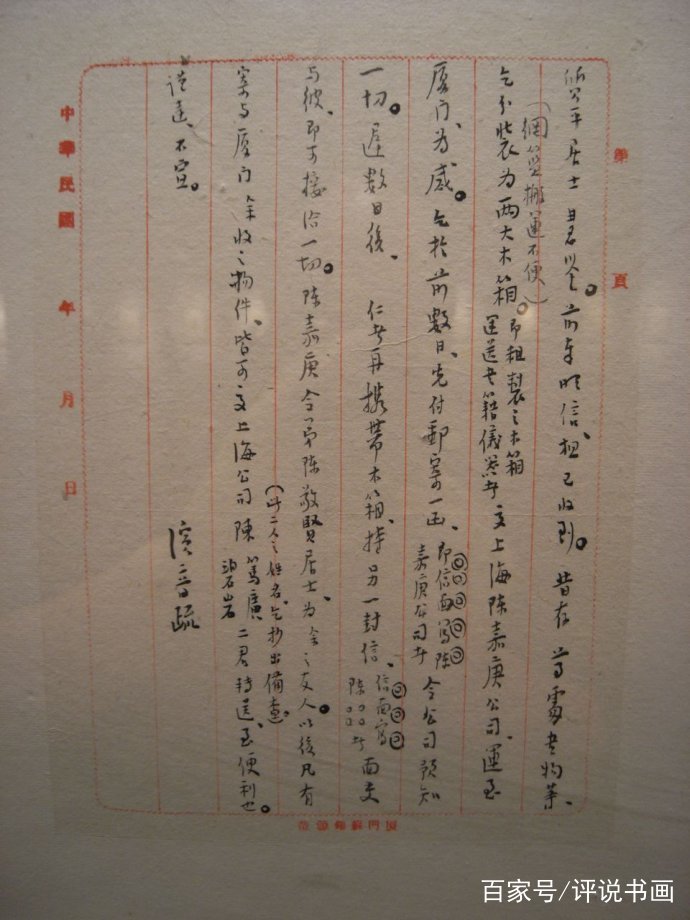 第　頁
質平居士慧鑒。前奉明信、想已收到。昔存尊處書物等、
（網籃搬運不便）
乞分裝為兩大木箱。即粗製之木箱運送書籍儀器者 交上海陳嘉庚公司、運至
廈門、為感。乞於前數日、先付郵寄一函、即信面寫陳嘉庚公司者 令公司預知
一切。遲數日後、仁者再攜帶木箱、持另一封信、信面寫陳○○○○者 面交
與彼、即可接洽一切。陳嘉庚令弟陳敬賢居士、為余之友人。以後凡有
（此二人之姓名、乞抄出備查）
寄與廈門余收之物件、皆可交上海公司陳篤廣泊岩二君轉送、至便利也。
謹達、不宣。
演音疏
中華民國　年　月　日
百家号/评说书画